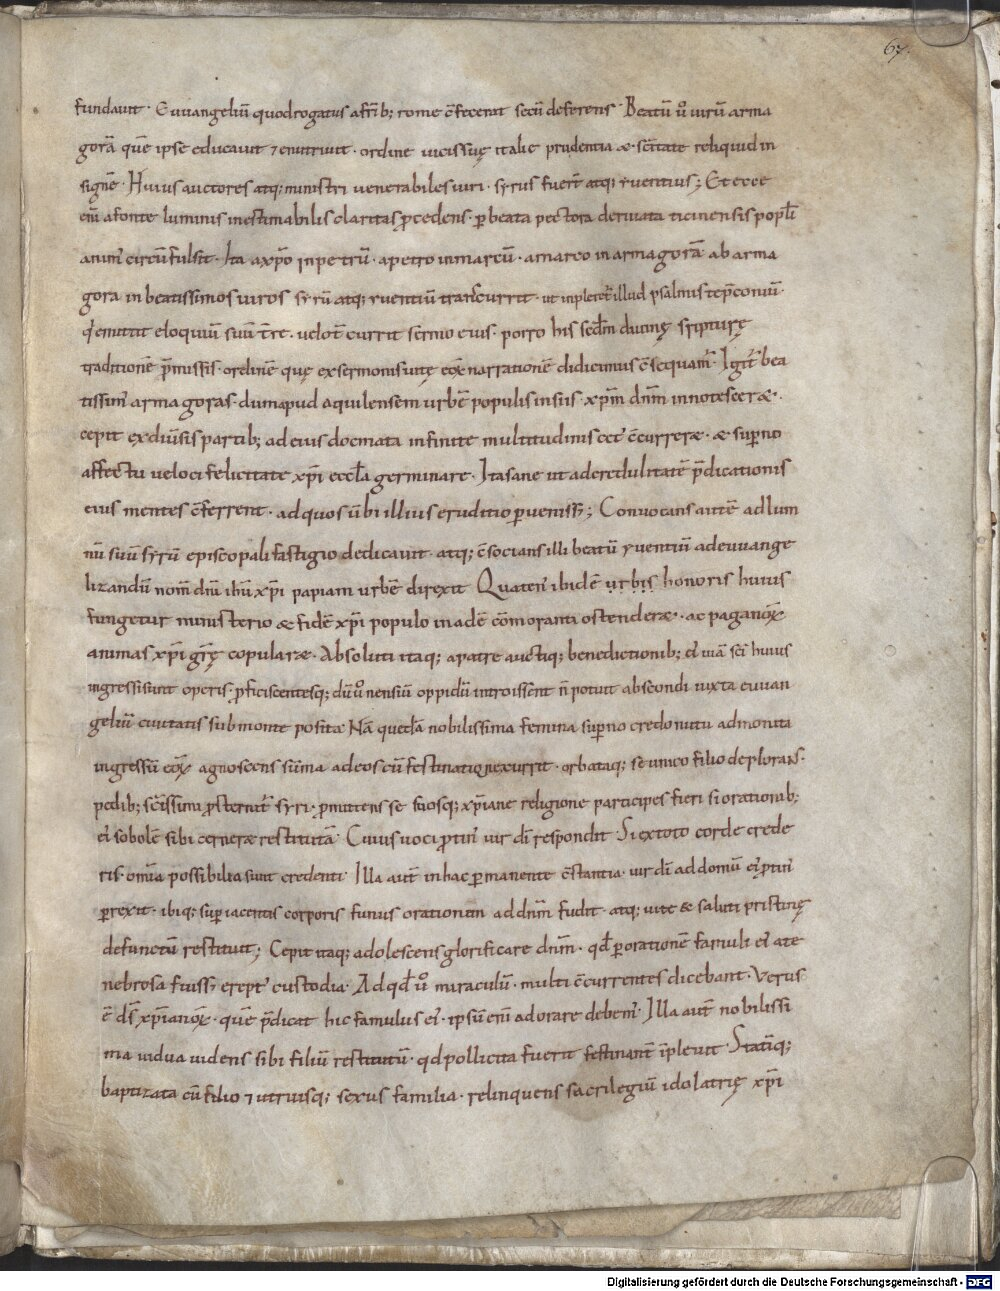 67.
fundauit· Euuangeliū quod rogatus a frīb; rome c̄fecerat secū deferens· Beatū ů uirū arma
gorā quē ipse educauit ⁊ enutriuit· ordine uicissuę italie prudentia & sc̄itate reliquid in
signē· Huius auctores atq; ministri uenerabiles uiri· syrus fuer̄ atq; yuentius; Et ecce
eni᷑ a fonte luminis inestimabilis claritas p̄cedens· p beata pectora deriuata ticinensis popl̄i
anim᷑ circūfulsit· Ita a xp̄o in petrū· a petro in marcū· a marco in armagorā ab arma
gora in beatissimos uiros syrū atq; yuentiū transcurrit· ut inpleret᷑ illud psalmistę p̄conium·
q᷑ emittit eloquiū suū t̄re· uelot̄ currit sermo eius· porro his sedm̄ diuinę scripturę
traditionē p̄missis· ordinē quę ex sermonis uitę eoꝝ narrationē didicimus c̄sequam᷑· Igit᷑ bea
tissim᷑ armagoras· dum apud aquilensem urbē populis insiis xp̄m dn̄m innotescer&·
cepit ex diūsis partib; ad eius docmata infinite multitudinis cet᷑ c̄currer&· & supno
affectu ueloci felicitate xp̄i eccl̄a germinare· Ita sane ut ad credulitatē p̄dicationis
eius mentes c̄ferrent· ad quos ūbi illius eruditio puenisss; Conuocans autē adlum
nū suū syrū episcopali fastigio dedicauit· atq; c̄socians illi beatū yuentiū ad euuange
lizandū nom̄ dn̄i ih̄u xp̄i papiam urbē direxit Quaten᷑ ibidē urbis honoris huius
fungetur ministerio & fidē xp̄i populo inadē cōmoranti ostender&· ac paganoꝝ
animas xp̄i gr̄ę copular&· Absoluti itaq; a patre auctiq; benedictionib; ei᷑ uiā sc̄i huius
ingressi sunt operis· p̄ficiscentesq; dū ůnensiū oppidū introissent n̄ potuit abscondi iuxta euuan
geliū ciuitatis sub monte posita Nā quedā nobilissima femina supno credo nutu admonita
ingressū eoꝝ agnoscens sūma ad eos cū festinatiōe excurrit· orbataq; se unico filio deplorans·
pedib; sc̄issimi p̄sternit᷑ syri· p̄mittens se suosq; xp̄iane religione participes fieri si orationib;
ei᷑ sobolē sibi cerner& restitutā· Cuius uoci p̄tin᷑ uir dī respondit Si ex toto corde crede
ris· om̄ia possibilia sunt credenti· Illa aut̄ in hac pmanente c̄stantia· uir dī ad domū ei᷑ p̄tin᷑
prexit· ibiq; sup iacentis corporis funus orationem ad dn̄m fudit· atq; uite & saluti pristinę
defunctū restituit; Cepit itaq; adolescens glorificare dn̄m· qd̄ p orationē famuli ei᷑ a te
nebrosa fuiss; erept᷑ custodia· Ad qd̄ ů miraculū· multi c̄currentes dicebant· Verus
ē ds̄ xp̄ianoꝝ· quē p̄dicat hic famulus ei᷑· ipsū eni᷑ adorare debem᷑· Illa aut̄ nobilissi
ma uidua uidens sibi filiū restitutū· qd pollicita fuerit festinant᷑ īpleuit· Statīq;
baptizata cū filio ⁊ utriusq; sexus familia· relinquens sacrilegiū idolatrię xp̄i
Digitalisierung gefördert durch die Deutsche Forschungsgemeinschaft - DFG